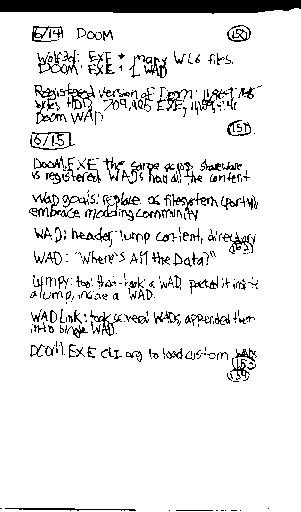 6/14 DOOM 150
Wolf3d: EXE + many WL6 files.
DOOM: EXE + 1 WAD
Registered version of Doom:
bytes HDD, 709,905 EXE,
Doom WAD
151
6/15
Doom.EXE the same across shareware
is registered. WADs had all the content
WAD goals: replace os filesystem (portability)
embrace modding community
WAD: header, lump content, directory
WAD: "Where's All the Data?"
Lumpy: tool that took a WAD, packed it inside
a lump, inside a WAD.
WADLink: took several WADs, appended them
into single WAD.
DOOM.EXE CLI arg to load custom WADs